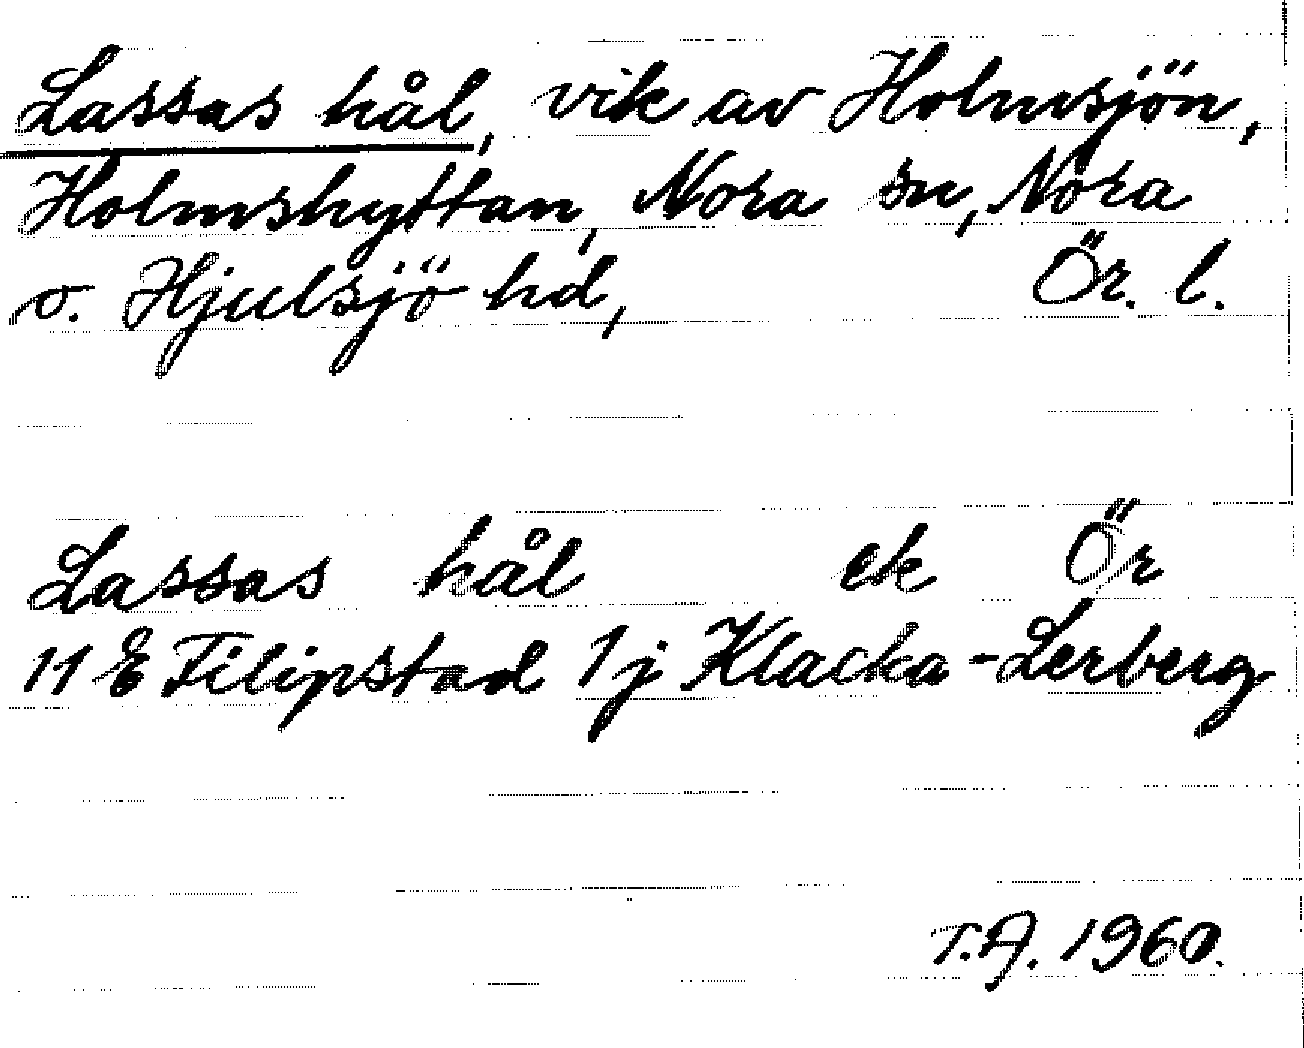 Lassas hål, vik av Holmsjön,
Holmshyttan, Nora sn, Nora
o. Hjulsjö hd, Ör. l.
Lassas hål ek Ör
11 E Filipstad 1j Klacka-Lerberg
T.A. 1960.